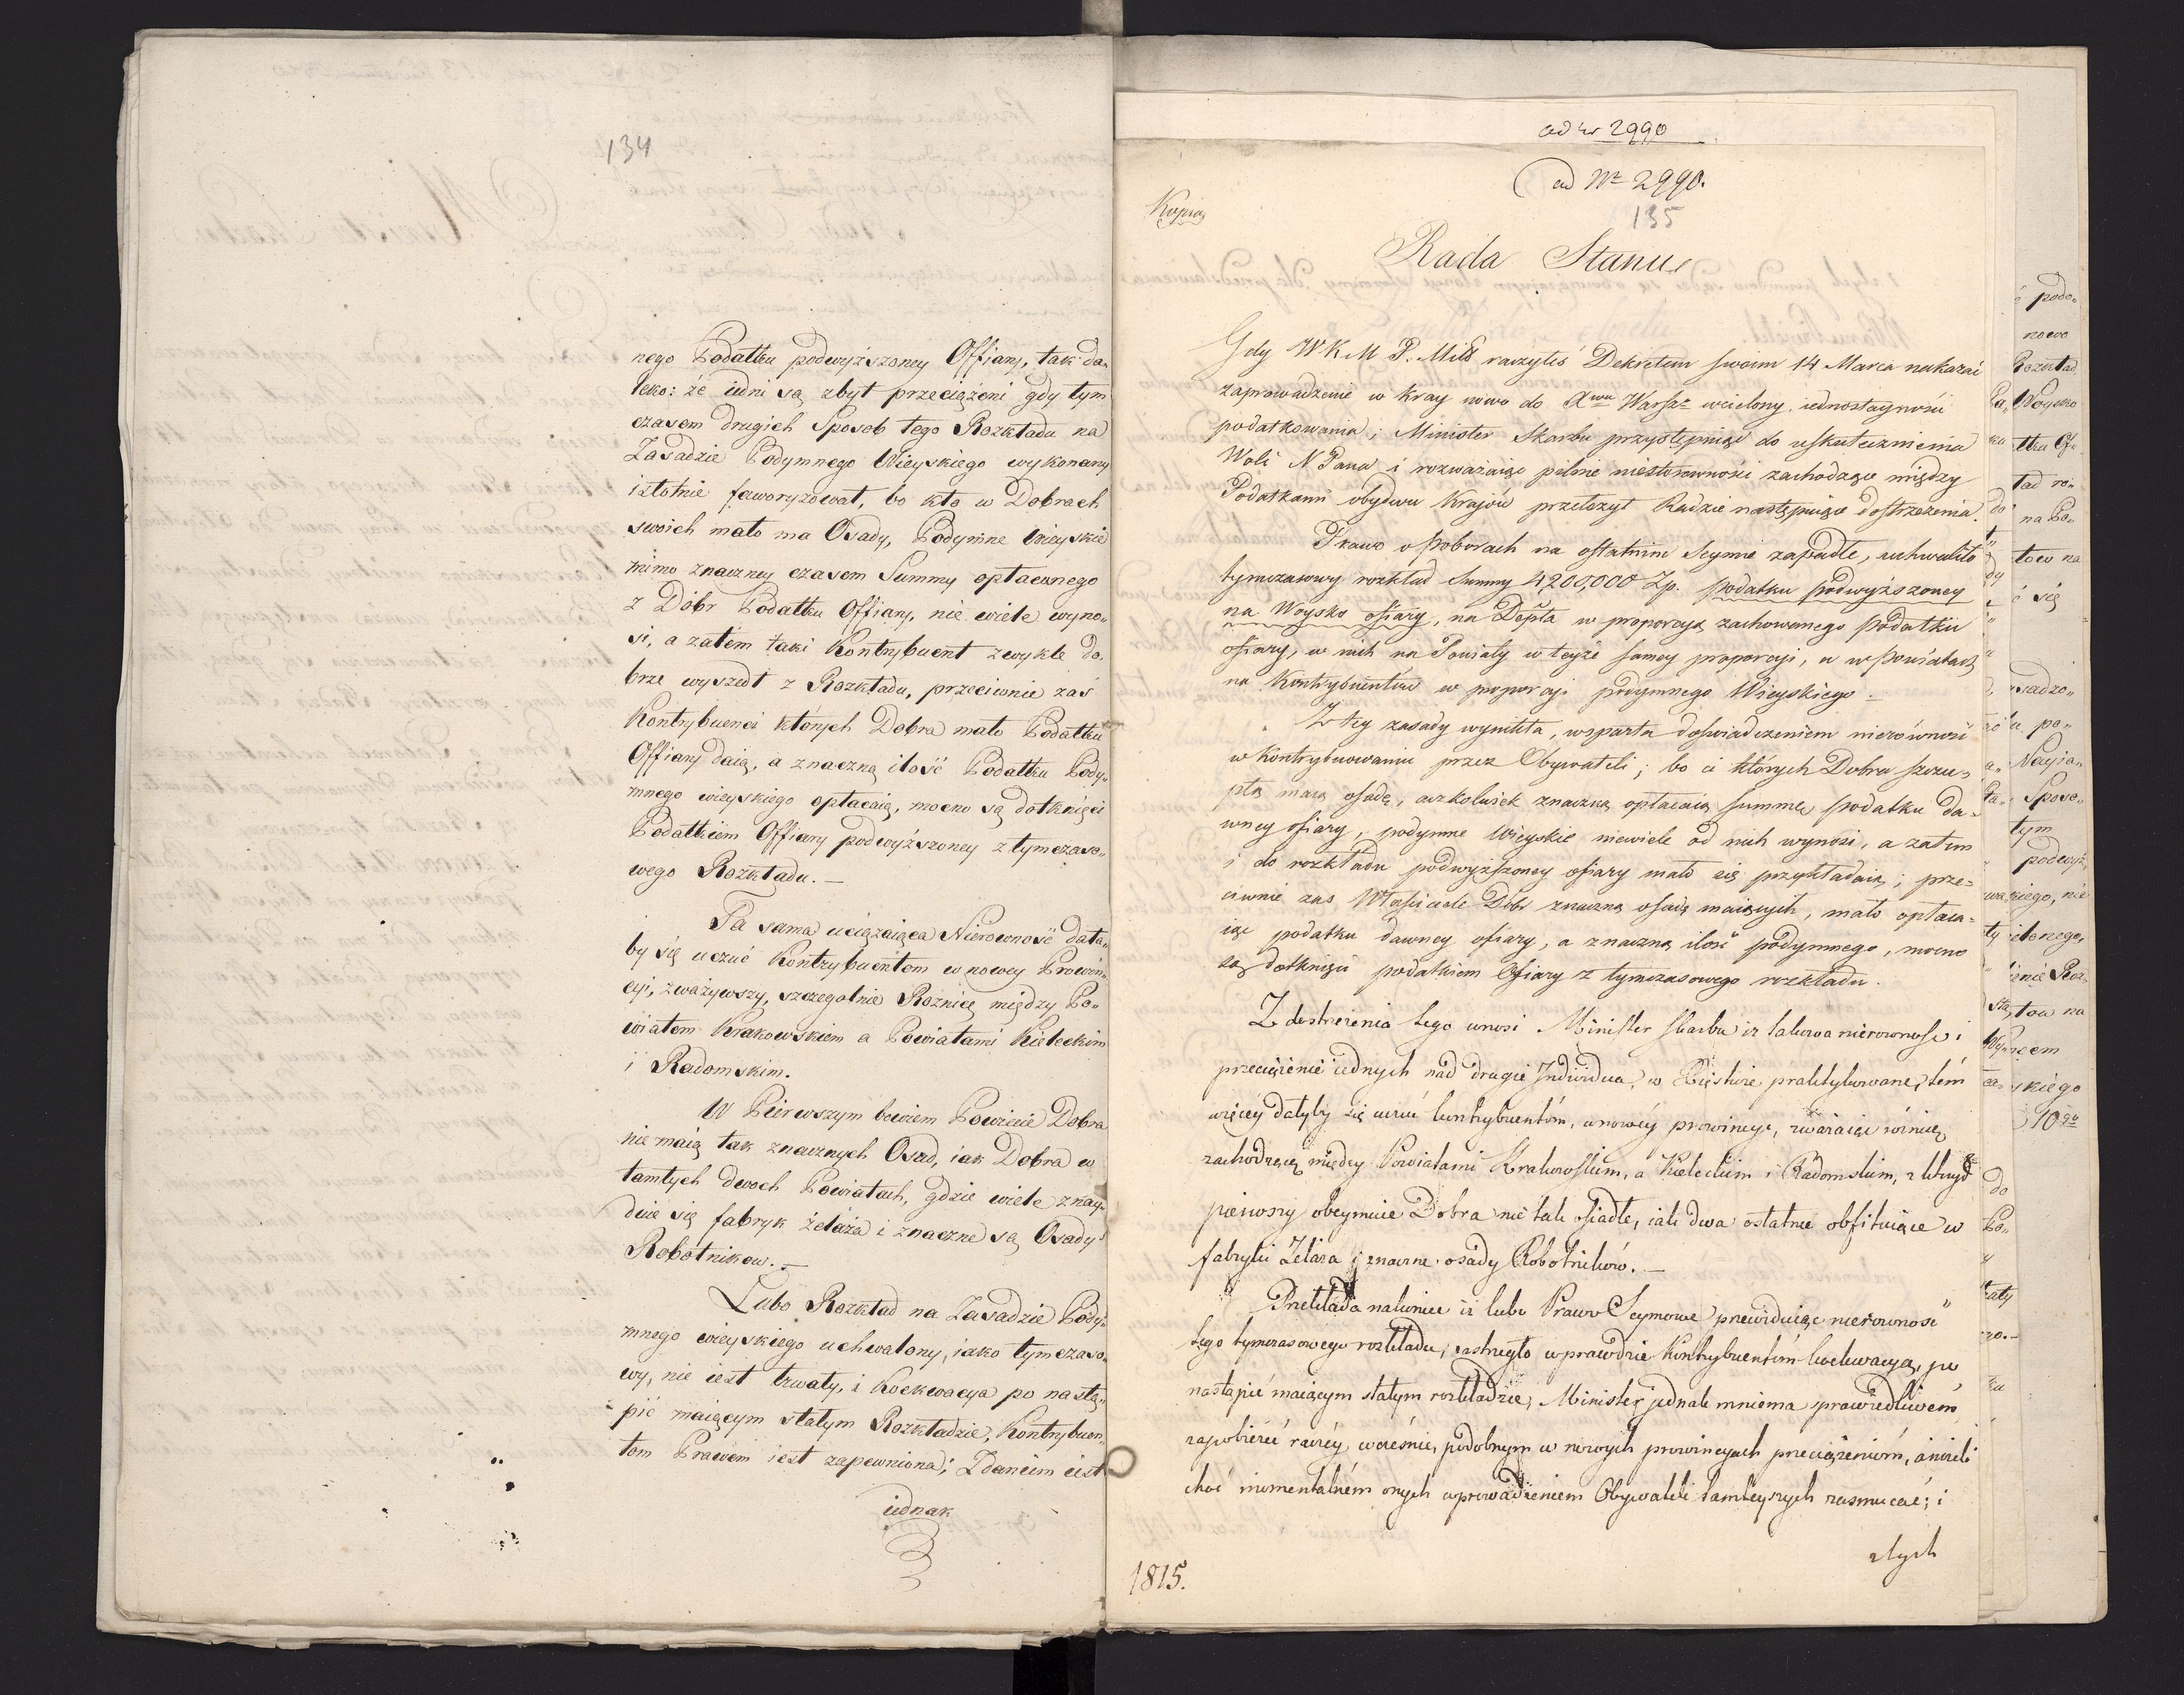 134
nego Podatku podwyższoney Offiary, tak da„
leko: że iedni są zbyt przeciążeni gdy tym
czasem drugich Sposob tego Rozkładu na
Zasadzie Podymnego Wieyskiego wykonany
istotnie faworyzował, bo kto w Dobrach
swoich mało ma Osady, Podymne wieyskie
mimo znaczney czasem Summy opłaconego
z Dóbr Podatku Offiary, nie wiele wyno„
si, a zatém taki Kontrybuent zwykle do„
brze wyszedł z Rozkładu, przeciwnie zaś
Kontrybuenci których Dobra mało Podatku
Offiary daią, a znaczną ilość Podatku Pody„
mnego wieyskiego opłacaią, mocno są dotknięci
Podatkiem Offiary podwyższoney z tymczaso„
wego Rozkładu. —
Ta sama uciążaiąca Nierowność dała„
by się uczuć Kontrybuentom w nowey Prowin„
cyi, zważywszy, szczegolnie Roznicę między Po„
wiatem Krakowskiem a Powiatami Kieleckim
i Radomskim.
W Pierwszym bowiem Powiecie Dobra
nie maią tak znacznych Osad, iak Dobra w
tamtych dwoch Powiatach, gdzie wiele znay„
duie się fabryk żelaza i znaczne są Osady
Robotnikow. —
Lubo Rozkład na Zasadzie Pody„
mnego wieyskiego uchwalony, iako tymczaso„
wy, nie iest trwały, i Koekwacya po nastą„
pić maiącym stałym Rozkładzie, Kontrybuen„
tom Prawem iest zapewniona; Zdaniem iest
iednak
ad nr 2990
ad Nr 2990.
135
Kopia
Rada Stanu
Gdy W K M P. Miłł raczyłeś Dekretem swoim 14 Marca nakazać
zaprowadzenie w kray nowo do Xwa Warsz: wcielony iednostayności
podatkowania; Minister Skarbu przystępuiąc do uskutecznienia
Woli N Pana i rozważaiąc pilnie niestosowności zachodzące między
Podatkami obydwu Krajów przełożył Radzie następuiące dostrzeżenia.
Prawo o Poborach na ostatnim Seymie zapadłe, uchwaliło
tymczasowy rozkład Summy 4200,000 Zp. podatku podwyższoney
na Woysko ofiary, na Depta w proporcyą zachowanego podatku
ofiary, w nich na Powiaty w teyże samey proporcyi, a w Powiatach
na Kontrybuentów w proporcyi podymnego Wieyskiego —
Z tey zasady wynikła, wsparta doświadczeniem nierówność
w kontrybuowaniu przez Obywateli; bo ci których Dobra szczu„
płą maią osadę, aczkolwiek znaczną opłacaią summę podatku da„
wney ofiary, podymne Wieyskie niewiele od nich wynosi, a zatem
i do rozkładu podwyższoney ofiary mało się przykładaią; prze„
ciwnie zas Właściciele Dóbr znaczną osadę maiących, mało opłaca„
iąc podatku dawney ofiary, a znaczną ilość podymnego, mocno
są dotknięci podatkiem Ofiary z tymczasowego rozkładu.
Z dostrzeżenia tego wnosi Minister Skarbu iż takowa nierowność i
przeciążenie iednych nad drugie Individua, w Xięstwie praktykowane, tém
więcéy dałyby się uczuć kontrybuentóm, w nowéy prowincyi, zważaiąc różnicę
zachodzącą między Powiatami Krakowskim, a Kieleckim i Radomskim, z których
pierwszy obeymuie Dobra nie tak osiadłe, iak dwa ostatnie obfituiące w
fabryki Żelaza i znaczne osady Robotników. —
Przekłada nakoniec iż lubo Prawo Seymowe przewiduiąc nierowność
tego tymczasowego rozkładu, zastrzegło wprawdzie Kontrybuentóm koekwacyą, po
nastąpić maiącym stałym rozkładzie, Minister jednak mniema sprawiedliwém
zapobierzć raczéy wcześnie, podobnym w nowych prowincyach przeciążenióm, aniżeli
choć momentalném onych wprowadzeniem Obywateli tamteyszych zasmucać; i
z tych
1815.
podo„
nowo
Rozkład
Woysko
na Po„
się
Nayia„
Sposo„
tym
podwyż„
kiego, nie
skiego
do
Po„